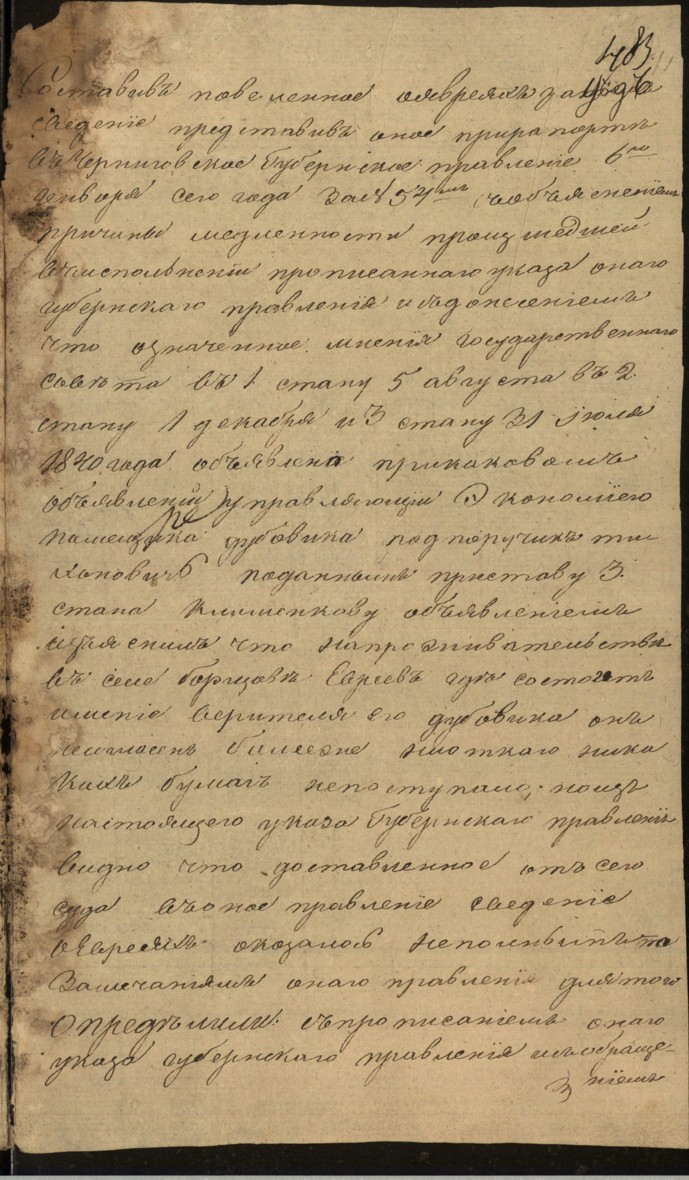 483
Составивъ повеленное оевреяхъ
сведение представивъ оное прирапортѣ
въ Черниговское Губернское правление 6го
генваря сего года за№ 54мъ, собъяснениемъ
причины медленности произшедшей
въисполнении прописаннаго указа онаго
губернскаго правления исъдонесениемъ
что означенное мнения государственнаго
совѣта въ 1 стану 5 августа въ 2
стану 1 декабря и 3 стану 31 июля
1840 года объявлено прикаковомъ
объявлении управляющий Экономиею
помещика дубовика подпоручикъ ти
хоновичъ поданнымъ приставу 3.
стана Клименкову объявлениемъ
изъяснилъ что напрожывательство
въ селе борщовкѣ Евреевъ гдѣ состоитъ
имение верителя его дубовика онъ
несогласенъ болеее ниоткаго ника
кихъ бумагъ непоступало, ноизъ
настоящего указа Губернскаго правления
видно что доставленное отъ сего
суда въоное правление сведение
оЕвреяхъ оказалось неполнымъ по
Замечаниямъ онаго правления длятого
Определили: съпрописаниемъ онаго
указа губернскаго правления исъобраще-
ниемъ